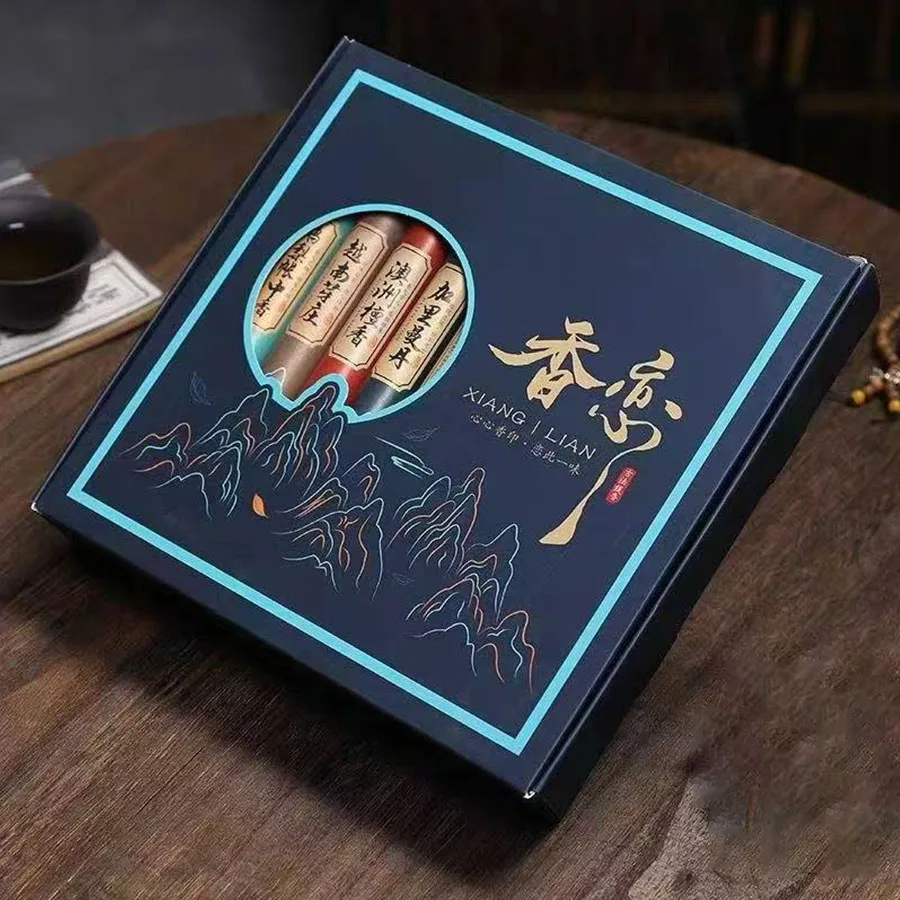 帐中香
越南芽庄
澳洲檀香
加里曼丹
香恋
XIANG | LIAN
心心香印·恋此一味